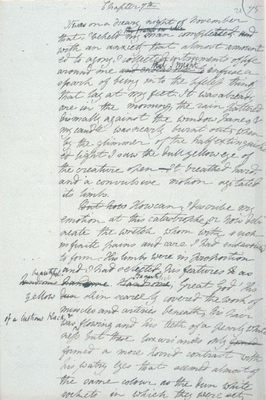 Chapter 7th
It was on a dreary night of November
that I beheld my man completed and
with an anxiety that almost amount
ed to agony, I collected instruments of life
around me that I might infuse a
spark of being into the lifeless thing
that lay at my feet. It was already
one in the morning, the rain pattered
dismally against the window panes &
my candle was nearly burnt out, when
by the glimmer of the half extinguish
ed light I saw the dull yellow eye of
the creature open—It breathed hard,
and a convulsive motion agitated
its limbs.
But how How can I describe my
emotion at this catastrophe; or how deli
neate the wretch whom with such
infinite pains and care I had endeavoured
to form. His limbs were in proportion
and I had selected his features as
beautiful
handsome Great God! His
yellow skin scarcely covered the work of
muscles and arteries beneath; his hair
of a lustrous black &
was flowing and his teeth of a pearly white
ness but these luxuriances only
formed a more horrid contrast with
his watry eyes that seemed almost of
the same colour as the dun white
sockets in which they were set